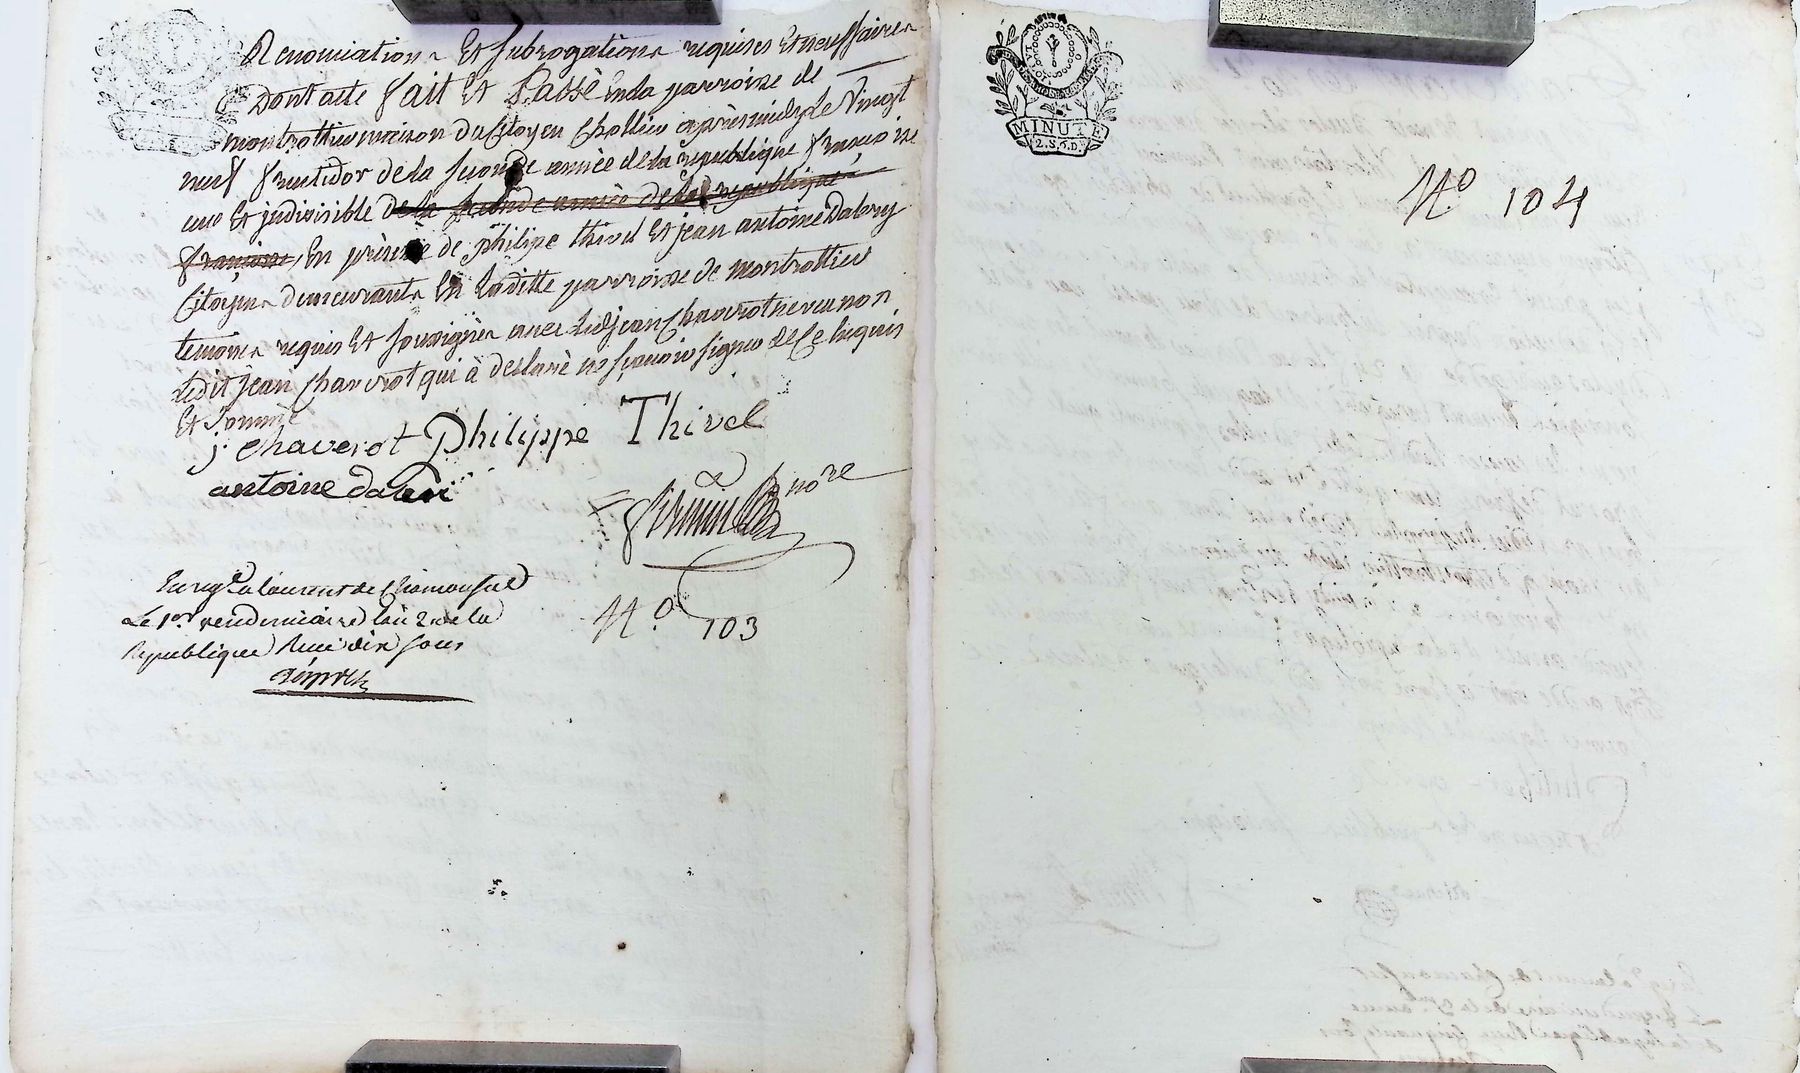 Renonciations Et subrogations requises Et necessaires
Dont acte fait Et Passé En la parroisse de
montrottier maison du Citoyen Chollier après midy le Vingt
neuf fructidor de la seconde année de la republique francoise
une Et jndivisible de la seconde année de la republique
françoise, En présence de philipe thivel Et jean antoine Dalery
Citoyens demeurants En laditte parroisse de montrottier
temoins requis Et soussignés avec ledjean Chaverot neveu non
ledit jean Chaverot qui à declaré ne sçavoir signer de Ce Enquis
Et sommé
j. chaverot Philippe Thivel
antoine daleri
nore
Enregé a laurent de Chamousset
Le 1er vendemiaire l'an 2 de la
Republique Reçu dix sous
No. 103
MINUTE
2.S.6.D.
No 104